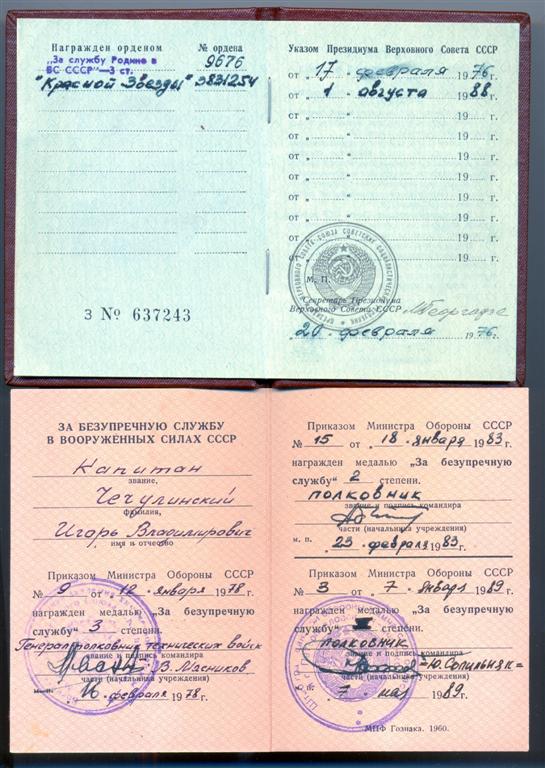 Награжден орденом
№ ордена
„За службу Родине в
ВС СССР"—3 ст.
9676
"Красной Звезды" 3831254
З № 637243
Указом Президиума Верховного Совета СССР
от „ 17 " февраля 1976 г.
от „ 1 " августа 1988 г.
от „ " 19 г.
от „ " 19 г.
от „ " 19 г.
от „ " 19 г.
от „ " 19 г.
от „ " 19 г.
от „ " 19 г.
от „ " 19 г.
М. П.
Секретарь Президиума
Верховного Совета СССР
„ 20 " февраля 1976 г.
ЗА БЕЗУПРЕЧНУЮ СЛУЖБУ
В ВООРУЖЕННЫХ СИЛАХ СССР
Капитан
звание,
Чечулинский
фамилия,
Игорь Владимирович
имя и отчество
Приказом Министра Обороны СССР
№ 9 от „ 12 " января 1978 г.
награжден медалью „За безупречную
службу" 3 степени.
Генерал-полковник технических войск
звание и подпись командира
В. Мясников
части (начальника учреждения)
16 " февраля 1978 г.
Приказом Министра Обороны СССР
№ 15 от „ 18 " января 1983 г.
награжден медалью „За безупречную
службу" 2 степени.
полковник
звание и подпись командира
части (начальника учреждения)
м. п. 23 " февраля 1983 г.
Приказом Министра Обороны СССР
№ 3 от „ 7 " января 1989 г.
награжден медалью „За безупречную
службу" I степени.
полковник
звание и подпись командира
части (начальника учреждения)
м. п. 7 " мая 1989 г.
МПФ Гознака. 1960.